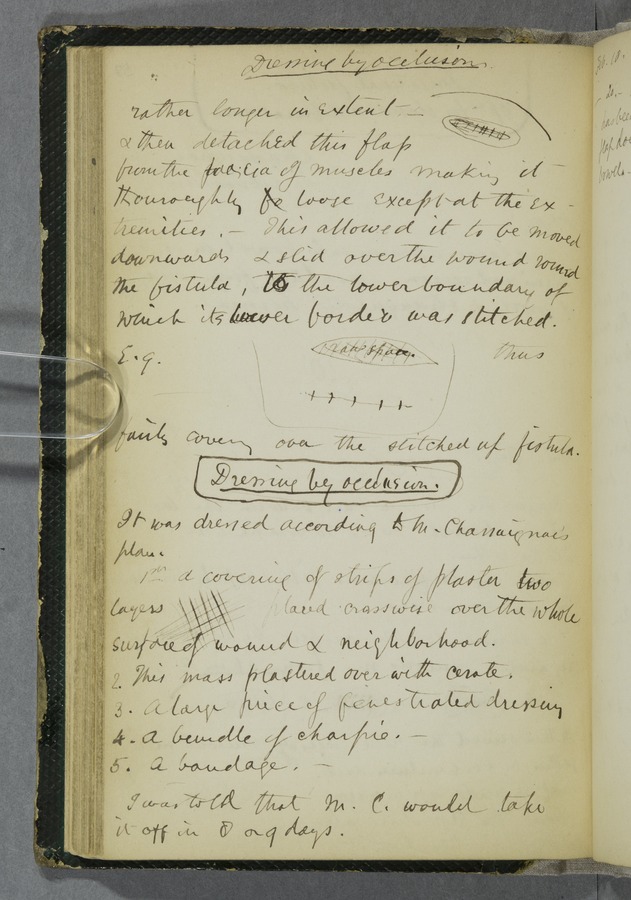 Dressing by occlusion.
rather longer in extent —
& then detached this flap
from the fascia of muscles making it
thouroughly loose except at the ex-
tremities. — This allowed it to be moved
downwards & slid over the wound round
the fistula, to the lower boundary of
which its lower border was stitched.
E.g.
raw space.
thus
fairly covering over the stitched up fistula.
Dressing by occlusion.
It was dressed according to M. Chassaignac's
plan.
1st a covering of strips of plaster two
layers placed crosswise over the whole
surface of wound & neighborhood.
2. This mass plastered over with cerate.
3. A large piece of fenestrated dressing
4. A bundle of charpie. —
5. A bandage. —
I was told that M. C. would take
it off in 8 or 9 days.